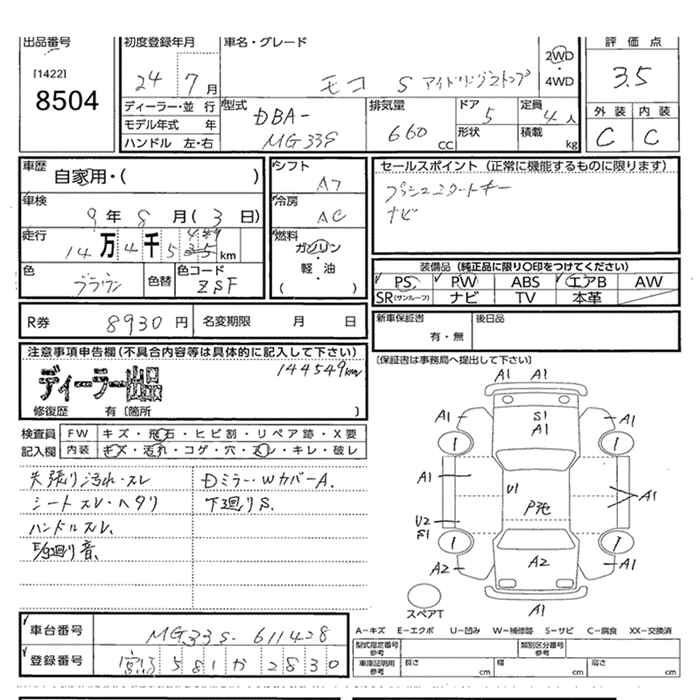 出品番号
[1422]
8504
初度登録年月
24 7 月
車名・グレード
モコ S アイドリングストップ
2WD
・
4WD
評価点
3.5
外装 内装
C C
ディーラー・並行
モデル年式 年
ハンドル 左・右
型式
DBA-
MG33S
排気量
660 CC
ドア
5
形状
定員
4 人
積載
kg
車歴
自家用・( )
車検
9 年 8 月 ( 3 日)
走行
14 万 4 千 5 49 km
色
ブラウン
色替
色コード
ZSF
シフト
AT
冷房
AC
燃料
ガソリン
・
軽・油
( )
セールスポイント (正常に機能するものに限ります)
プッシュスタートキー
ナビ
装備品 (純正品に限り〇印をつけてください)
PS PW ABS エアB AW
SR(サンルーフ) ナビ TV 本革
R券 8930 円 名変期限 月 日
新車保証書
有・無
後日品
(保証書は事務局へ提出して下さい)
注意事項申告欄(不具合内容等は具体的に記入して下さい)
144549km
ディーラー出品
修復歴 有 (箇所 )
検査員
記入欄
FW キズ・飛石・ヒビ割・リペア跡・X要
内装 キズ・汚れ・コゲ・穴・スレ・キレ・破レ
天張り汚れ・スレ
シートスレ・ヘタリ
ハンドルスレ、
E/g廻り音、
Dミラー・WカバーA.
下廻りS.
A1 A1
A1 S1 A1
A1
A1 U1 A1
P泡
U2
S1
A2 A2 A1
A1
スペアT
車台番号 MG33S-611428
登録番号 宮 581 か 2830
A-キズ E-エクボ U-凹み W-補修跡 S-サビ C-腐食 XX-交換済
型式指定番号
参考
類別区分番号
参考
車庫証明用
参考
長さ cm 幅 cm 高さ cm